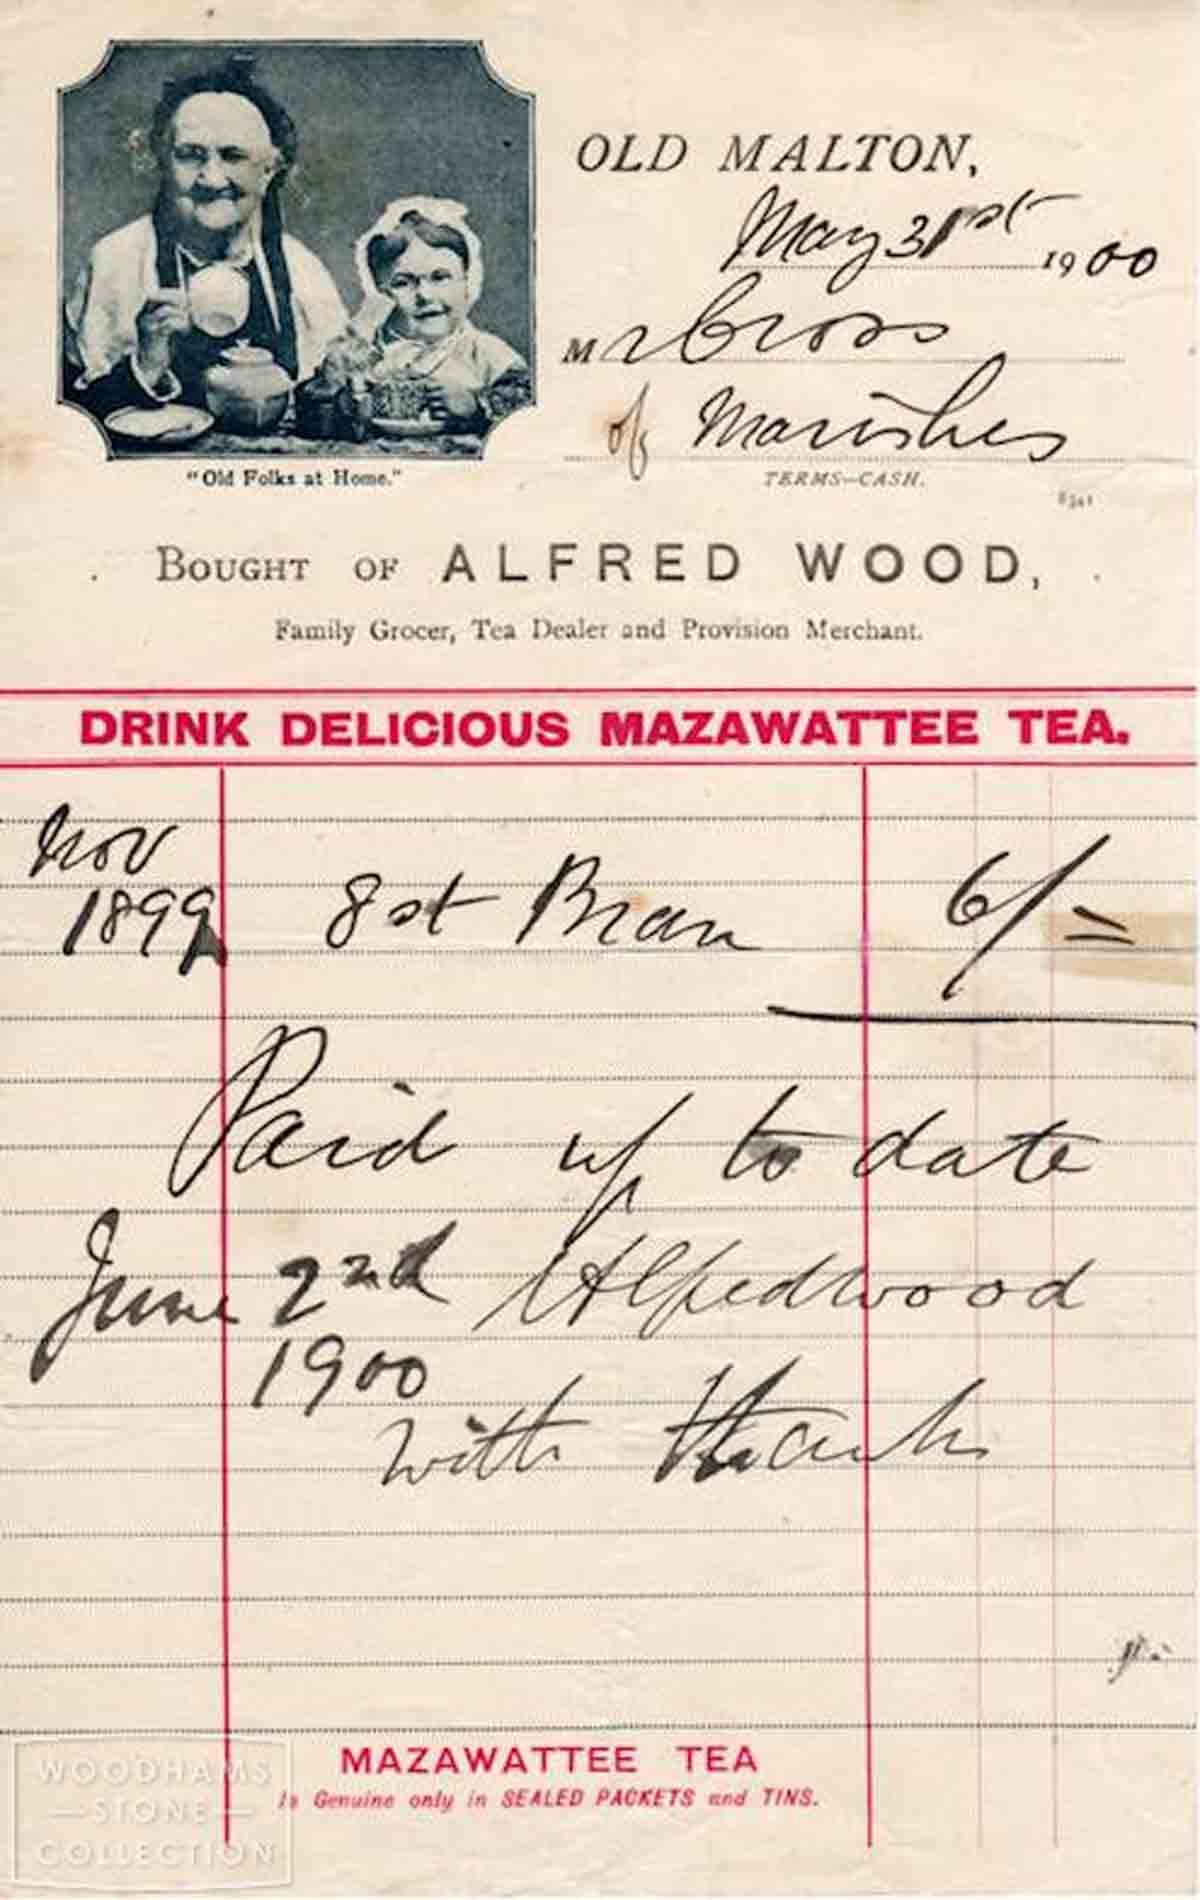 OLD MALTON,
May 31st 1900
Mr Cross
of Marishes
"Old Folks at Home."
TERMS—CASH.
BOUGHT OF ALFRED WOOD,
Family Grocer, Tea Dealer and Provision Merchant.
DRINK DELICIOUS MAZAWATTEE TEA.
Nov
1899 8 st Bran 6/=
Paid up to date
June 2nd Alfred Wood
1900
with thanks
MAZAWATTEE TEA
Is Genuine only in SEALED PACKETS and TINS.
WOODHAMS
—STONE—
COLLECTION